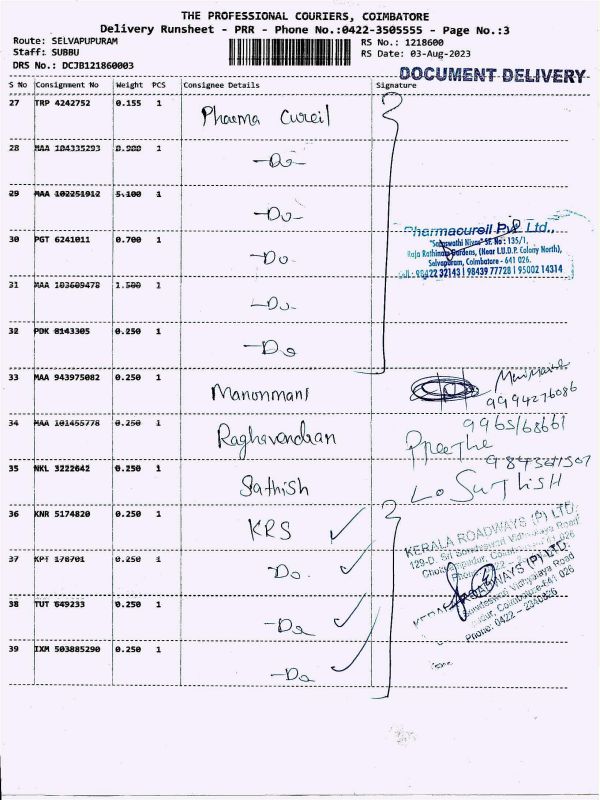 THE PROFESSIONAL COURIERS, COIMBATORE
Delivery Runsheet - PRR - Phone No.:0422-3505555 - Page No.:3
Route: SELVAPUPURAM RS No.: 1218600
Staff: SUBBU RS Date: 03-Aug-2023
DRS No.: DCJB121860003
DOCUMENT DELIVERY
S No Consignment No Weight PCS Consignee Details Signature
27 TRP 4242752 0.155 1 Pharma Cureil
28 MAA 104335293 0.900 1 -Do-
29 MAA 102251912 5.100 1 -Do-
30 PGT 6241011 0.700 1 -Do-
31 MAA 103609478 1.500 1 -Do-
32 PDK 8143305 0.250 1 -Do
Pharmacureil Pvt Ltd.,
"Saraswathi Nivas" Sf. No : 135/1,
Raja Rathinam Gardens, (Near L.U.D.P. Colony North),
Selvapuram, Coimbatore - 641 026.
Cell : 98422 32143 | 98439 77728 | 95002 14314
33 MAA 943975082 0.250 1 Manonmani
9994276086
34 MAA 101455778 0.250 1 Raghavendran
9965168661
Preethe
35 NKL 3222642 0.250 1 Sathish
36 KNR 5174820 0.250 1 KRS
37 KPT 178701 0.250 1 Do.
38 TUT 649233 0.250 1 -Do
39 IXM 503885290 0.250 1 -Do
KERALA ROADWAYS (P) LTD.